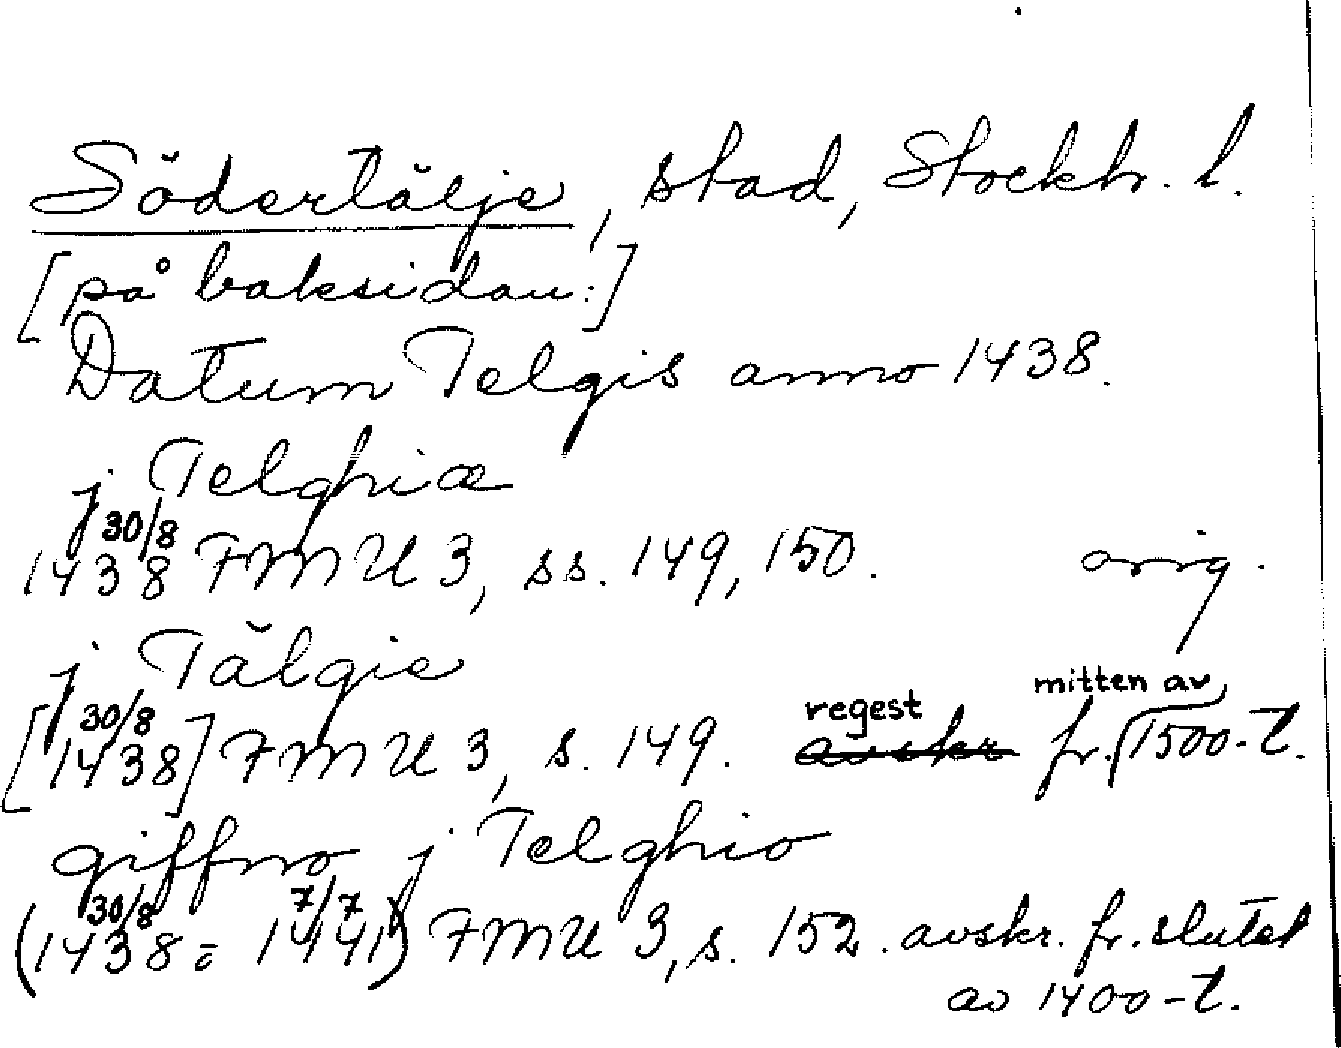 Södertälje, stad, Stockh. l.
[på baksidan:]
Datum Telgis anno 1438.
j Telghiæ
30/8
1438 FMU 3, ss. 149, 150. orig.
j Tälgie
30/8 regest mitten av
[1438] FMU 3, s. 149. avskr fr. 1500-t.
giffno j Telghio
30/8 7/7
(1438 = 1441) FMU 3, s. 152. avskr. fr. slutet
av 1400-t.